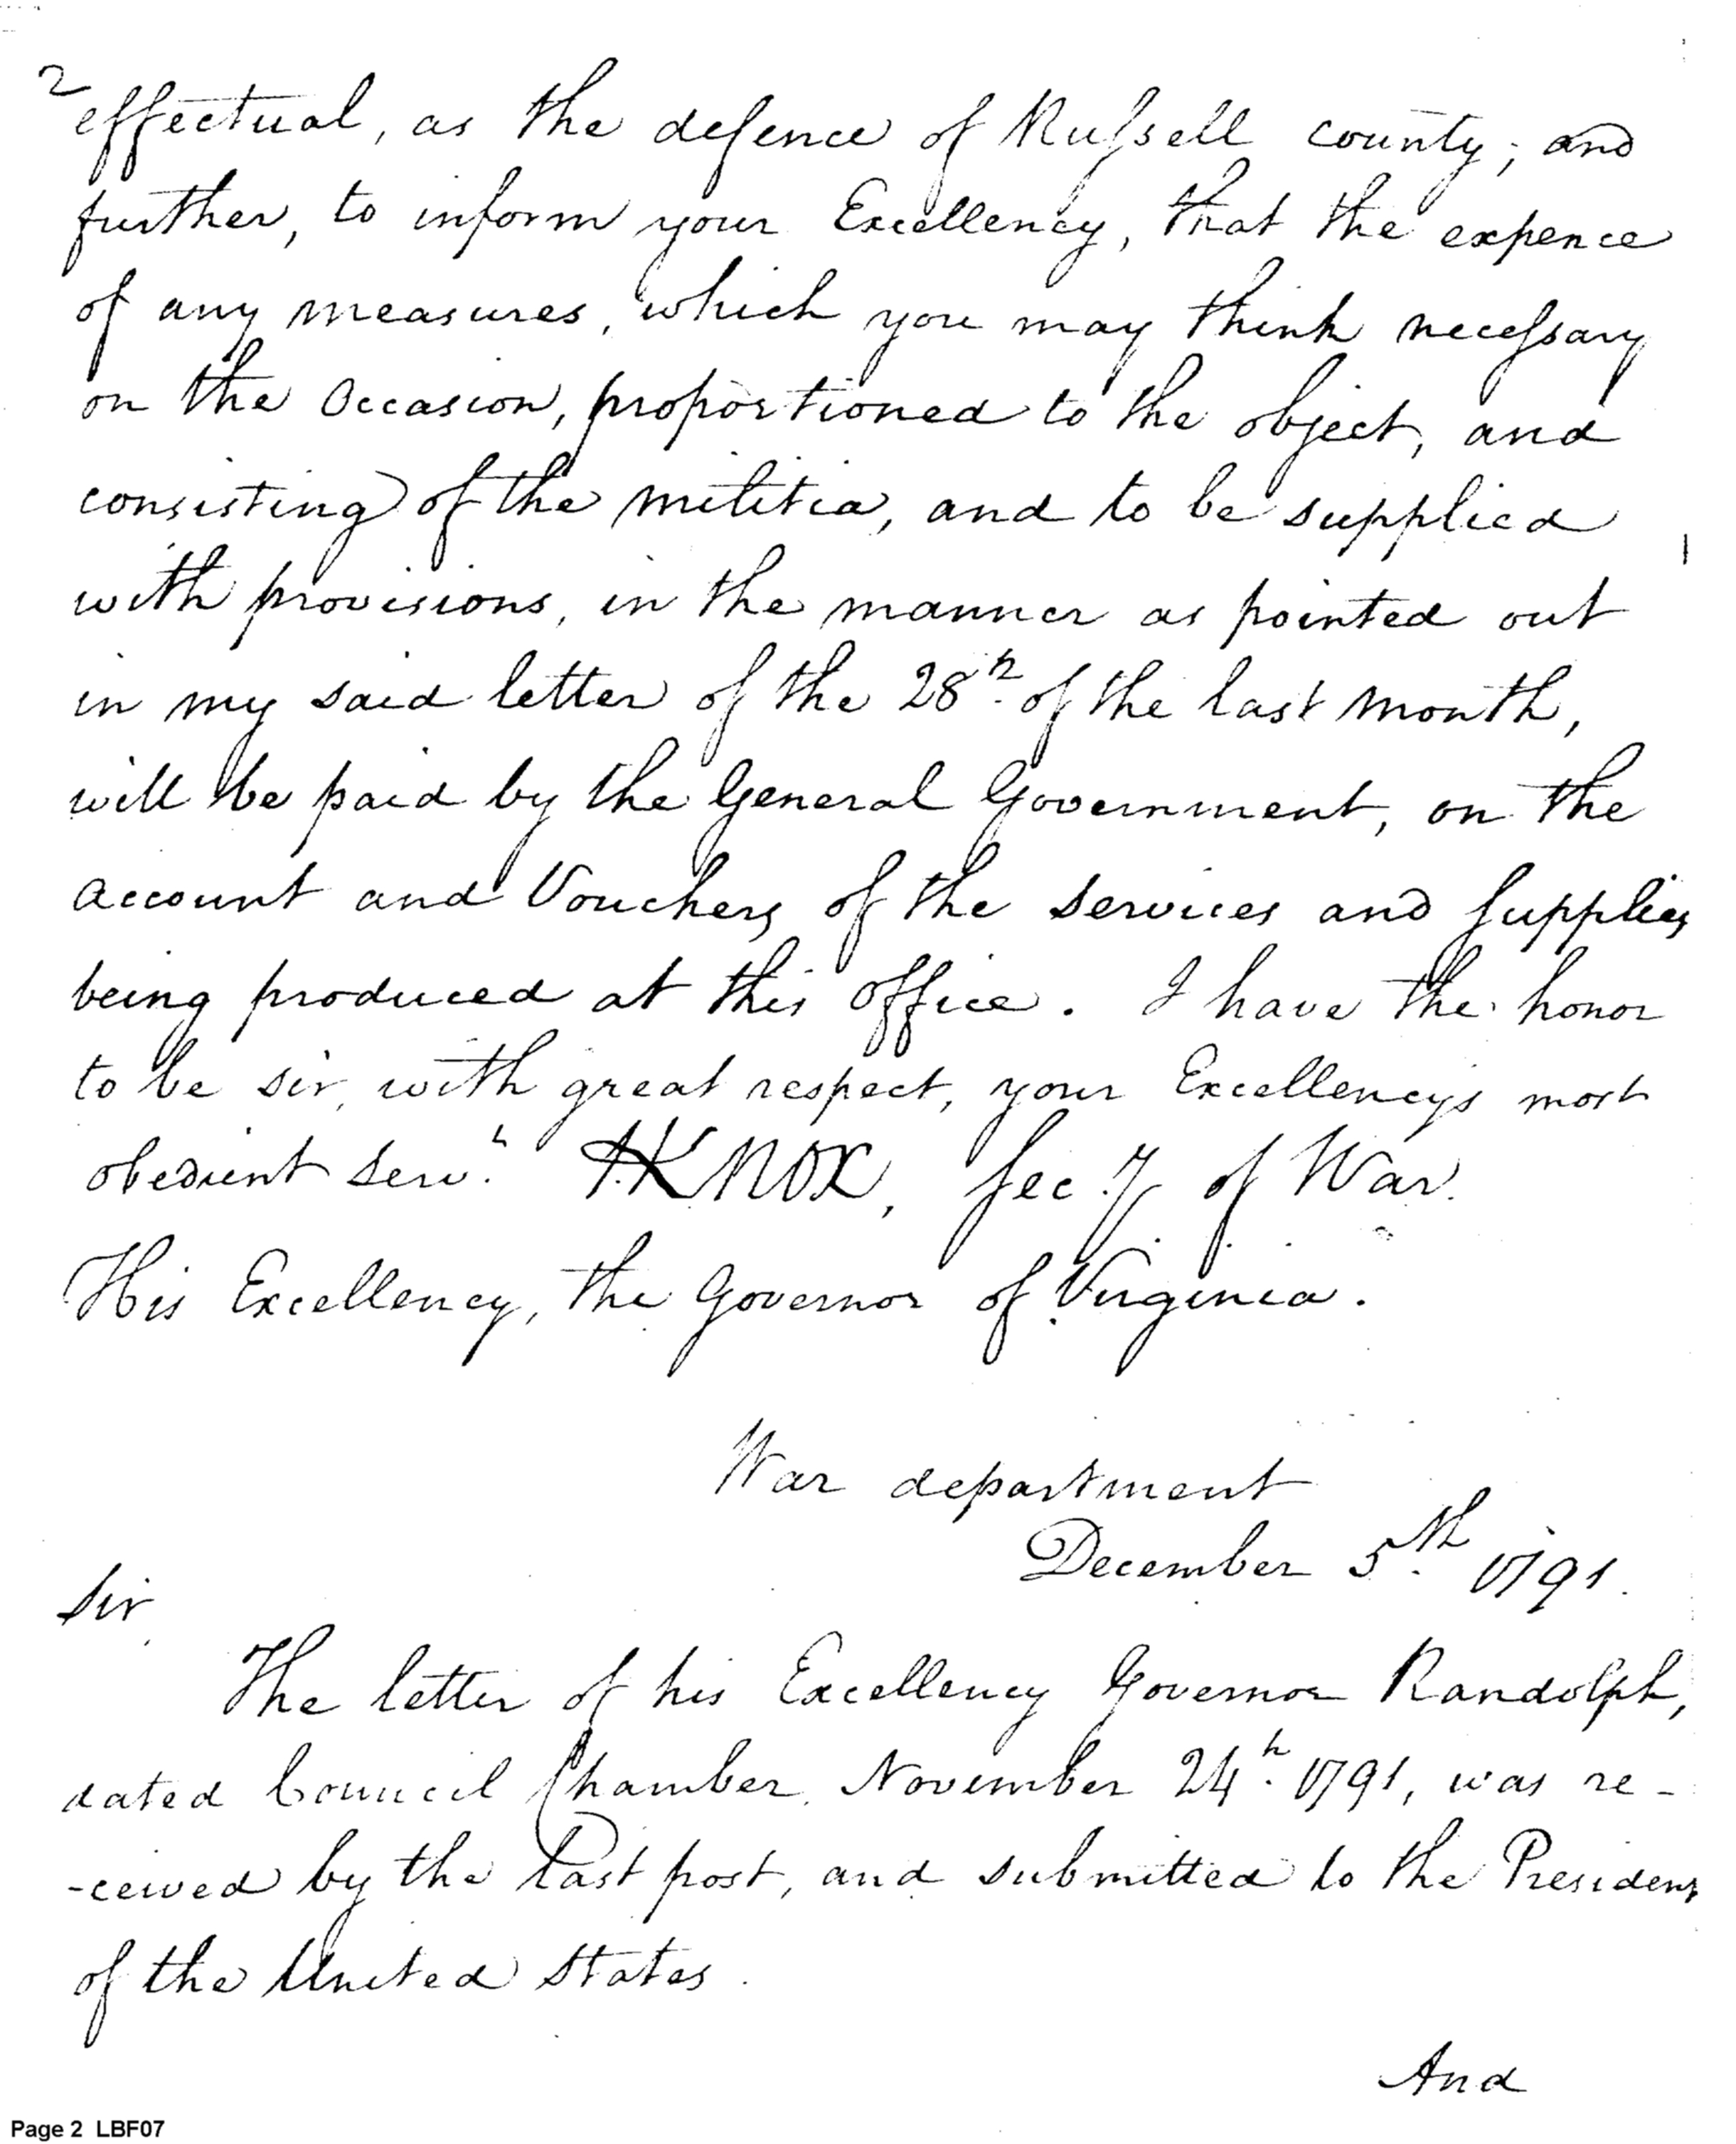 2
effectual, as the defence of Russell county; and
further, to inform your Excellency, that the expence
of any measures, which you may think necessary
on the Occasion, proportioned to the object, and
consisting of the militia, and to be supplied
with provisions, in the manner as pointed out
in my said letter of the 28th. of the last month,
will be paid by the General Government, on the
account and Vouchers of the services and supplies
being produced at this office. I have the honor
to be sir, with great respect, your Excellency's most
obedient servt. HKNOX, Secy. of War.
His Excellency, the Governor of Virginia.
War department
December 5th. 1791.
Sir,
The letter of his Excellency Governor Randolph,
dated Council Chamber, November 24th. 1791, was re-
-ceived by the last post, and submitted to the President
of the United States.
And
Page 2 LBF07